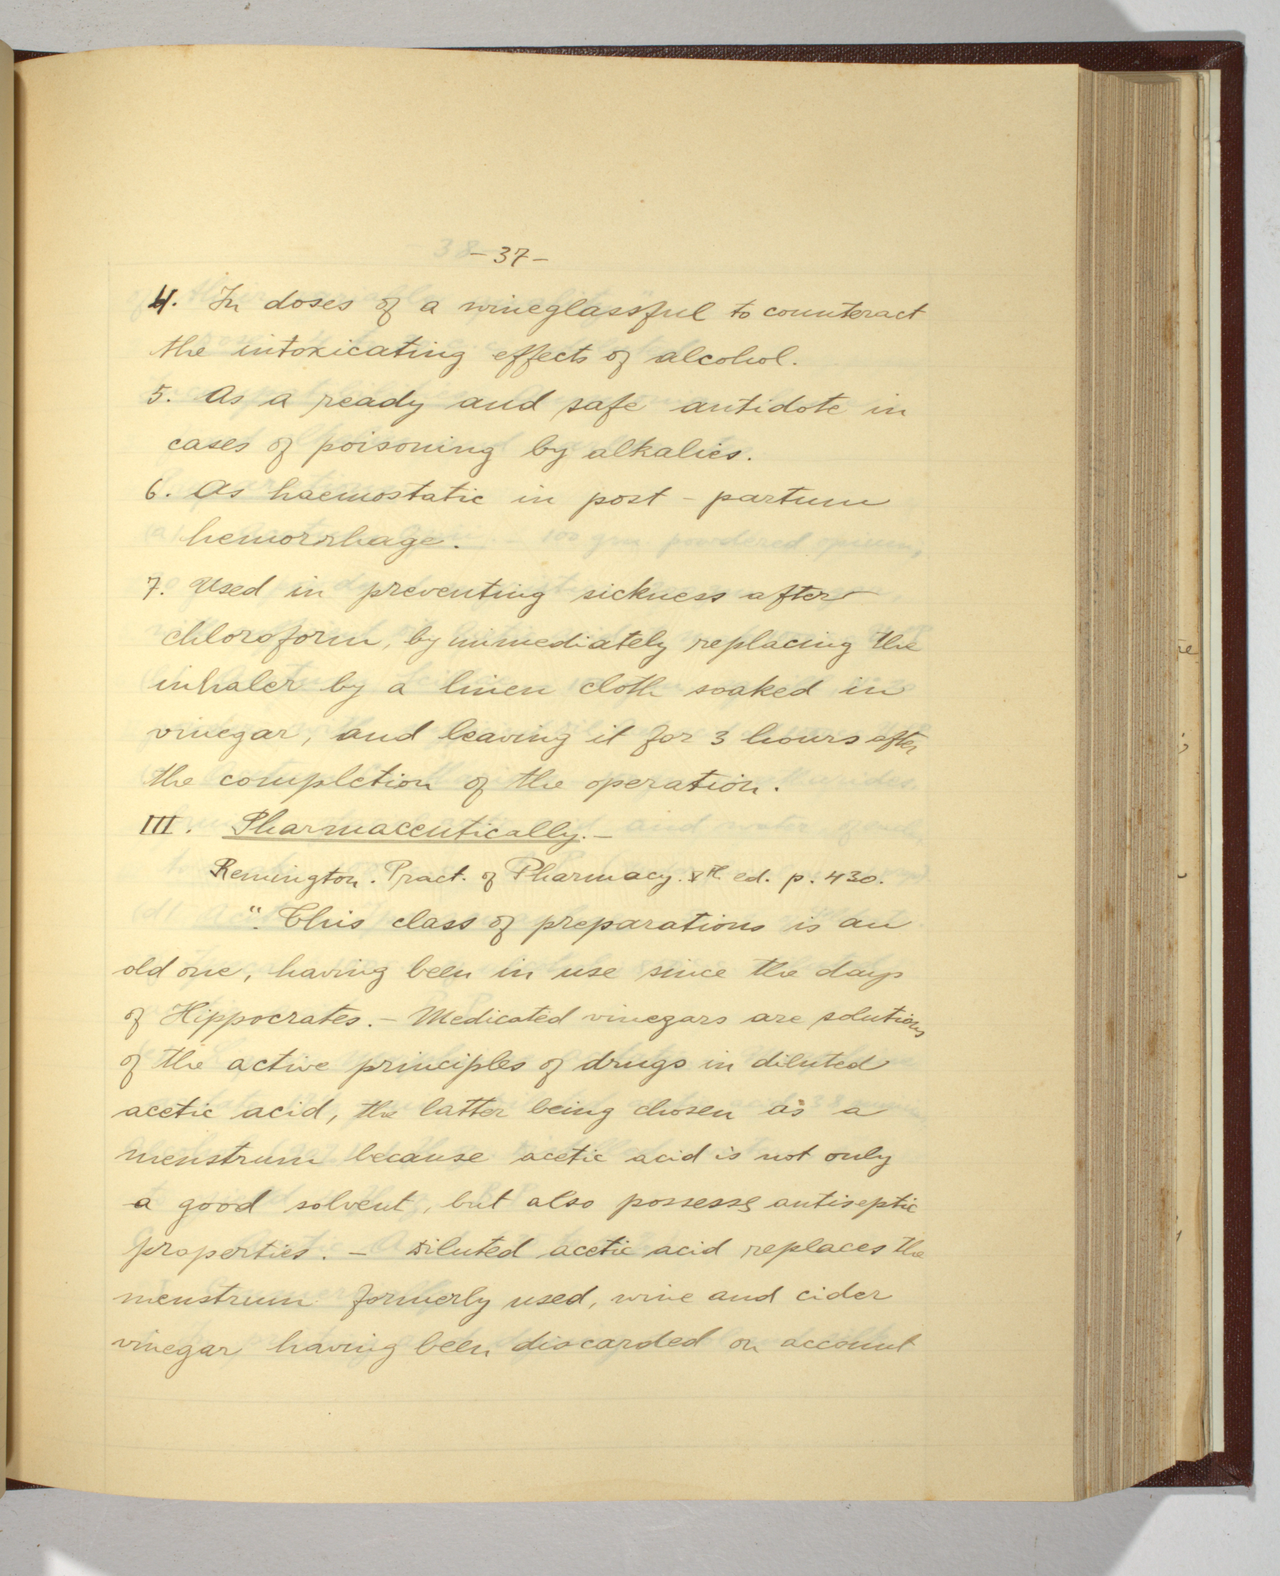 -37-
4. In doses of a wineglassful to counteract
the intoxicating effects of alcohol.
5. As a ready and safe antidote in
cases of poisoning by alkalies.
6. As haemostatic in post-partum
hemorrhage.
7. Used in preventing sickness after
chloroform, by immediately replacing the
inhaler by a linen cloth soaked in
vinegar, and leaving it for 3 hours after
the completion of the operation.
III. Pharmaceutically.-
Remington. Pract. of Pharmacy. ed. p. 430.
". This class of preparations is an
old one, having been in use since the days
of Hippocrates.- Medicated vinegars are solutions
of the active principles of drugs in diluted
acetic acid, the latter being chosen as a
menstrum because acetic acid is not only
a good solvent, but also possess antiseptic
properties. - Diluted acetic acid replaces the
menstrum formerly used, wine and cider
vinegar having been discarded on account